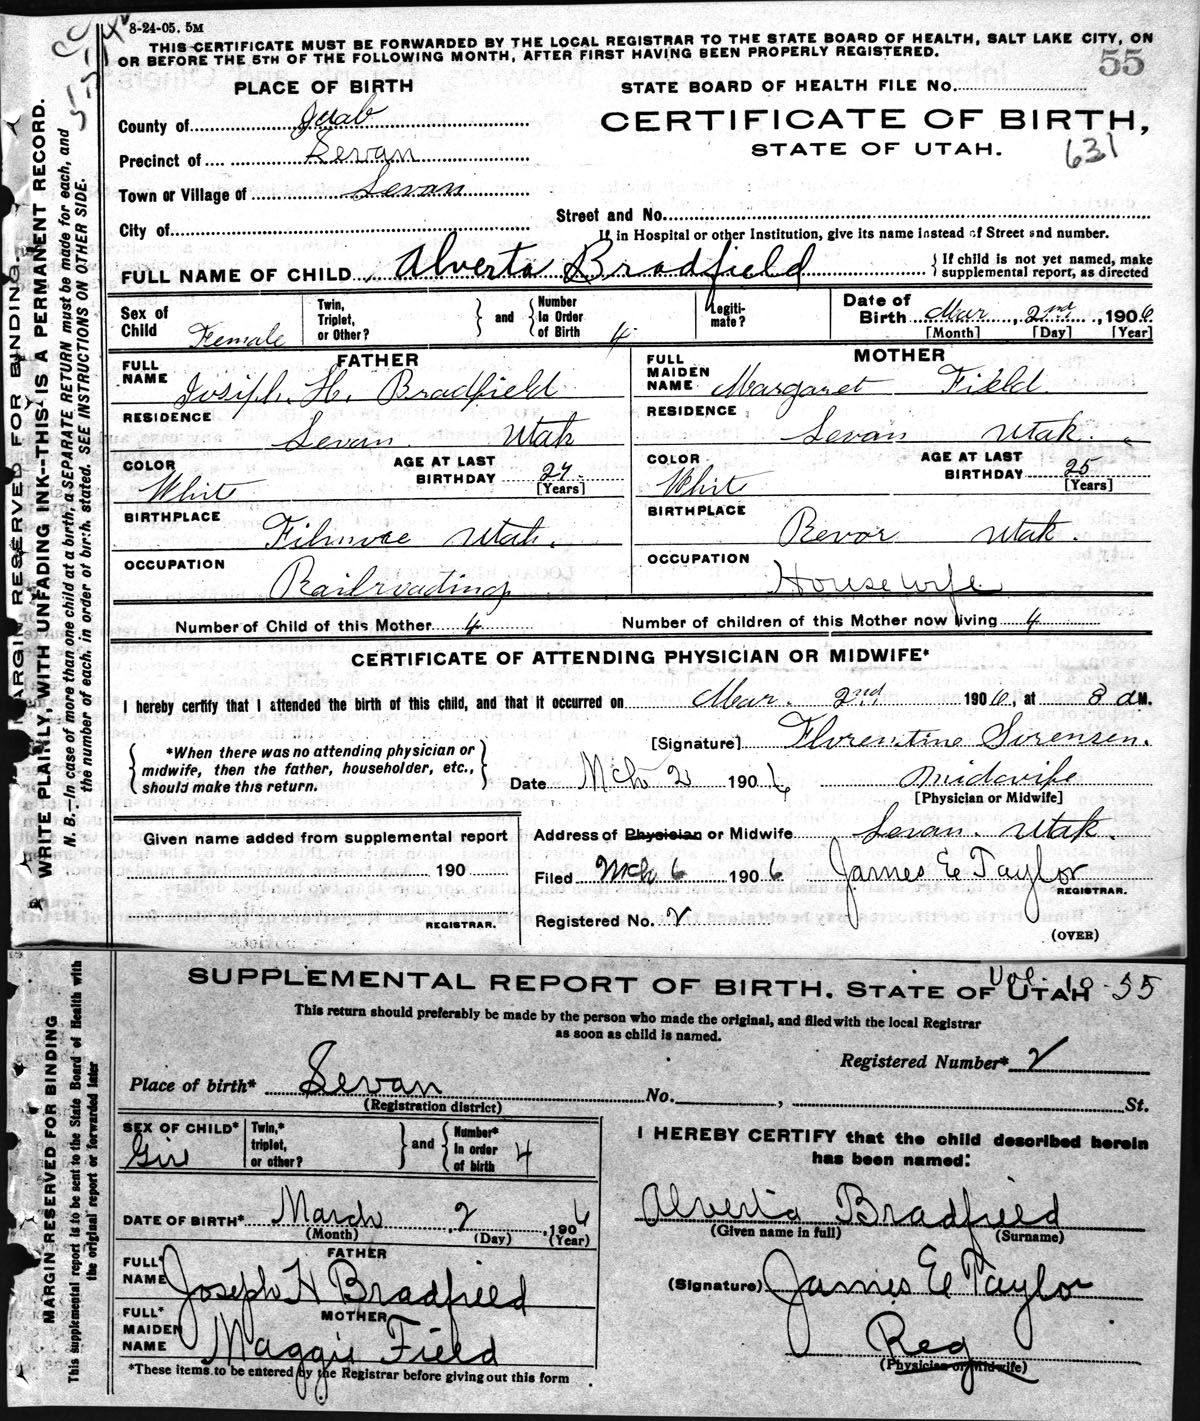 8-24-05. 5M
THIS CERTIFICATE MUST BE FORWARDED BY THE LOCAL REGISTRAR TO THE STATE BOARD OF HEALTH, SALT LAKE CITY, ON
OR BEFORE THE 5TH OF THE FOLLOWING MONTH, AFTER FIRST HAVING BEEN PROPERLY REGISTERED.
55
PLACE OF BIRTH
STATE BOARD OF HEALTH FILE No.
County of Juab
CERTIFICATE OF BIRTH,
Precinct of Levan
STATE OF UTAH.
631
Town or Village of Levan
Street and No.
City of
If in Hospital or other Institution, give its name instead of Street and number.
FULL NAME OF CHILD Alverta Bradfield
If child is not yet named, make
supplemental report, as directed
Sex of Child Female
Twin, Triplet, or Other?
and
Number In Order of Birth 4
Legiti-mate?
Date of Birth Mar, 2nd, 1906
[Month] [Day] [Year]
FATHER
MOTHER
FULL NAME Josiph. H. Bradfield
FULL MAIDEN NAME Margaret Field
RESIDENCE Levan. Utah
RESIDENCE Levan Utah.
COLOR White
AGE AT LAST BIRTHDAY 27 [Years]
COLOR Whit
AGE AT LAST BIRTHDAY 25 [Years]
BIRTHPLACE Filmore Utah.
BIRTHPLACE Bevor Utah.
OCCUPATION Railroading
OCCUPATION Housewife
Number of Child of this Mother 4
Number of children of this Mother now living 4
CERTIFICATE OF ATTENDING PHYSICIAN OR MIDWIFE*
I hereby certify that I attended the birth of this child, and that it occurred on Mar. 2nd 1906, at 8 a M.
*When there was no attending physician or
midwife, then the father, householder, etc.,
should make this return.
[Signature] Florentine Sorensen.
Date Mch 2 1906
Midwife
[Physician or Midwife]
Given name added from supplemental report
190
REGISTRAR.
Address of Physician or Midwife Levan. Utah.
Filed Mch 6 1906 James E Taylor
REGISTRAR.
Registered No. 2
(OVER)
MARGIN RESERVED FOR BINDING.
WRITE PLAINLY, WITH UNFADING INK--THIS IS A PERMANENT RECORD.
N. B.--In case of more than one child at a birth, a SEPARATE RETURN must be made for each, and
the number of each, in order of birth, stated. SEE INSTRUCTIONS ON OTHER SIDE.
SUPPLEMENTAL REPORT OF BIRTH. STATE OF UTAH
Vol. 10-55
This return should preferably be made by the person who made the original, and filed with the local Registrar
as soon as child is named.
Registered Number* 2
Place of birth* Levan No. , St.
(Registration district)
SEX OF CHILD* Girl
Twin,* triplet, or other?
and
Number* In order of birth 4
I HEREBY CERTIFY that the child described herein
has been named:
DATE OF BIRTH* March 2, 1906
(Month) (Day) (Year)
Alverta Bradfield
(Given name in full) (Surname)
FATHER
FULL* NAME Joseph H Bradfield
(Signature) James E Taylor
MOTHER
FULL* MAIDEN NAME Maggie Field
Reg
(Physician or Midwife)
*These items to be entered by the Registrar before giving out this form
MARGIN RESERVED FOR BINDING
This supplemental report is to be sent to the State Board of Health with
the original report or forwarded later